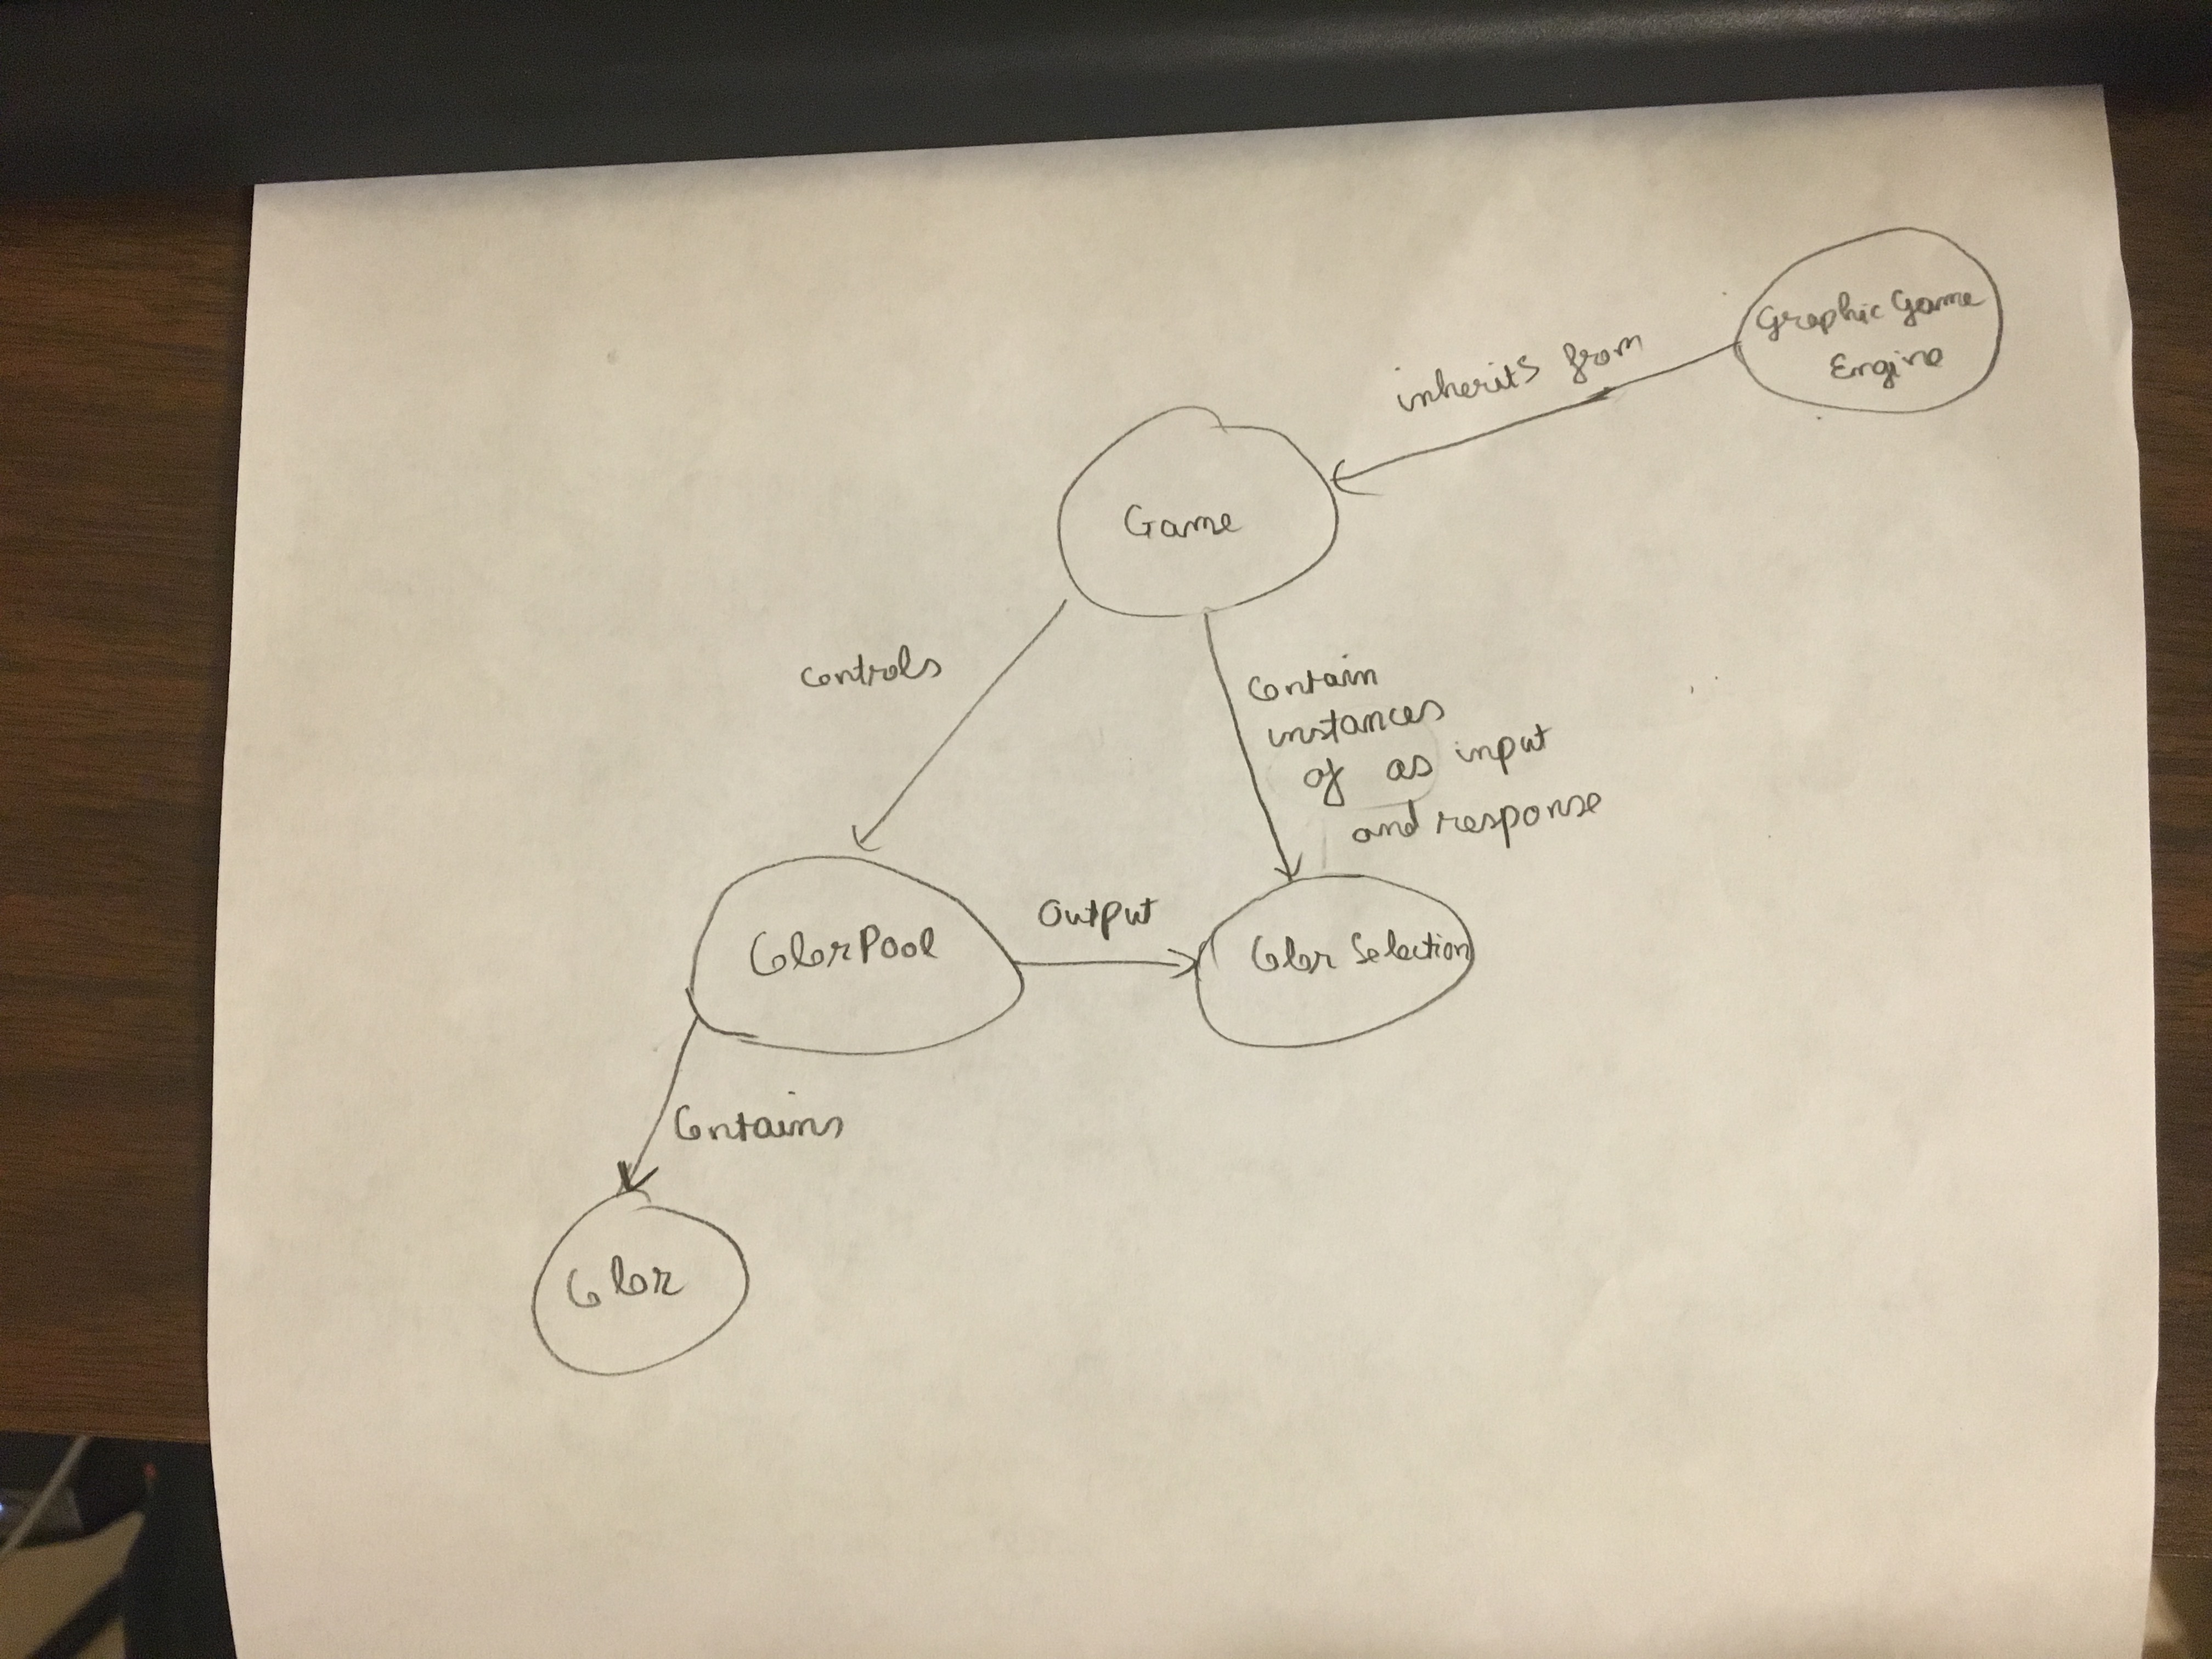 Graphic Game
Engine
inherits from
Game
Controls
Contain
instances
of as input
and response
ColorPool
Output
Color Selection
Contains
Color